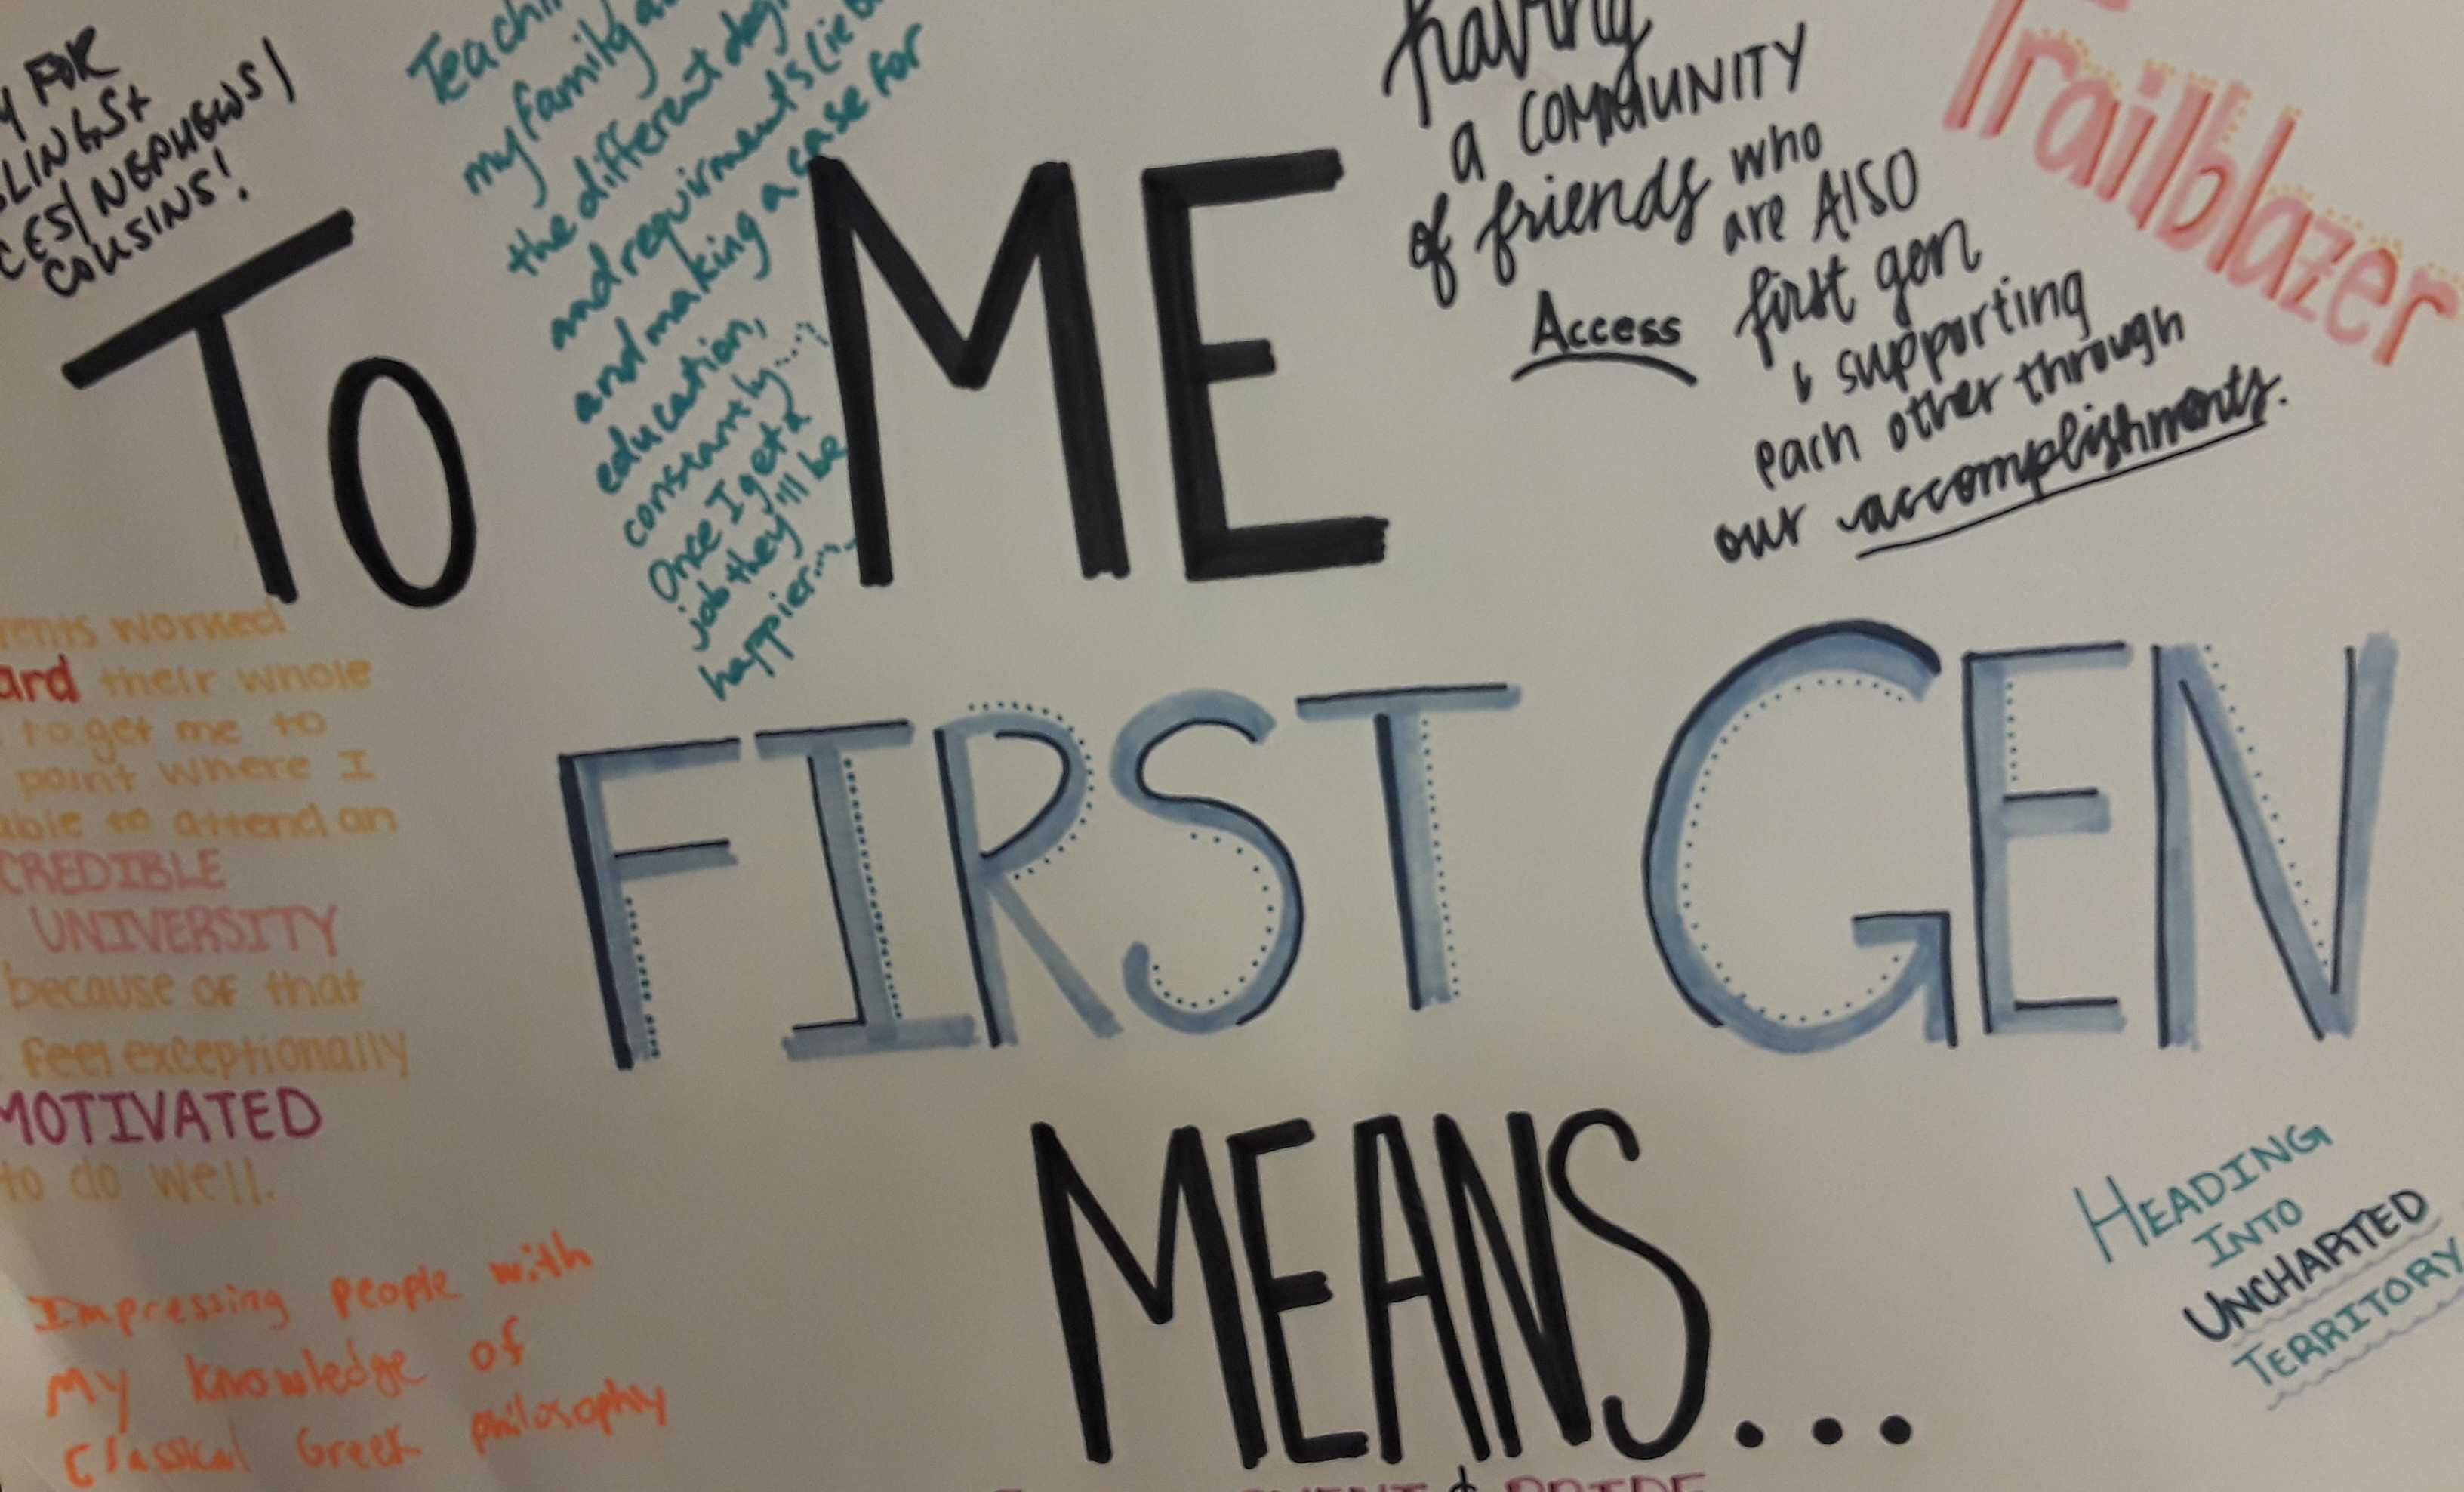 FOR
COUSINS!
NEPHEWS/
my family
the different
and requirments (ie
and making a case for
education,
constantly....
Once I get a
job they'll be
happier....
having
a COMMUNITY
of friends who
are AlSO
first gen
& supporting
each other through
our accomplishments.
Access
Trailblazer
TO ME
FIRST GEN
MEANS...
worked
their whole
to get me to
point where I
to attend an
UNIVERSITY
because of that
feel exceptionally
MOTIVATED
to do well.
Impressing people with
My knowledge of
Classical Greek philosophy
HEADING
INTO
UNCHARTED
TERRITORY
& PRIDE